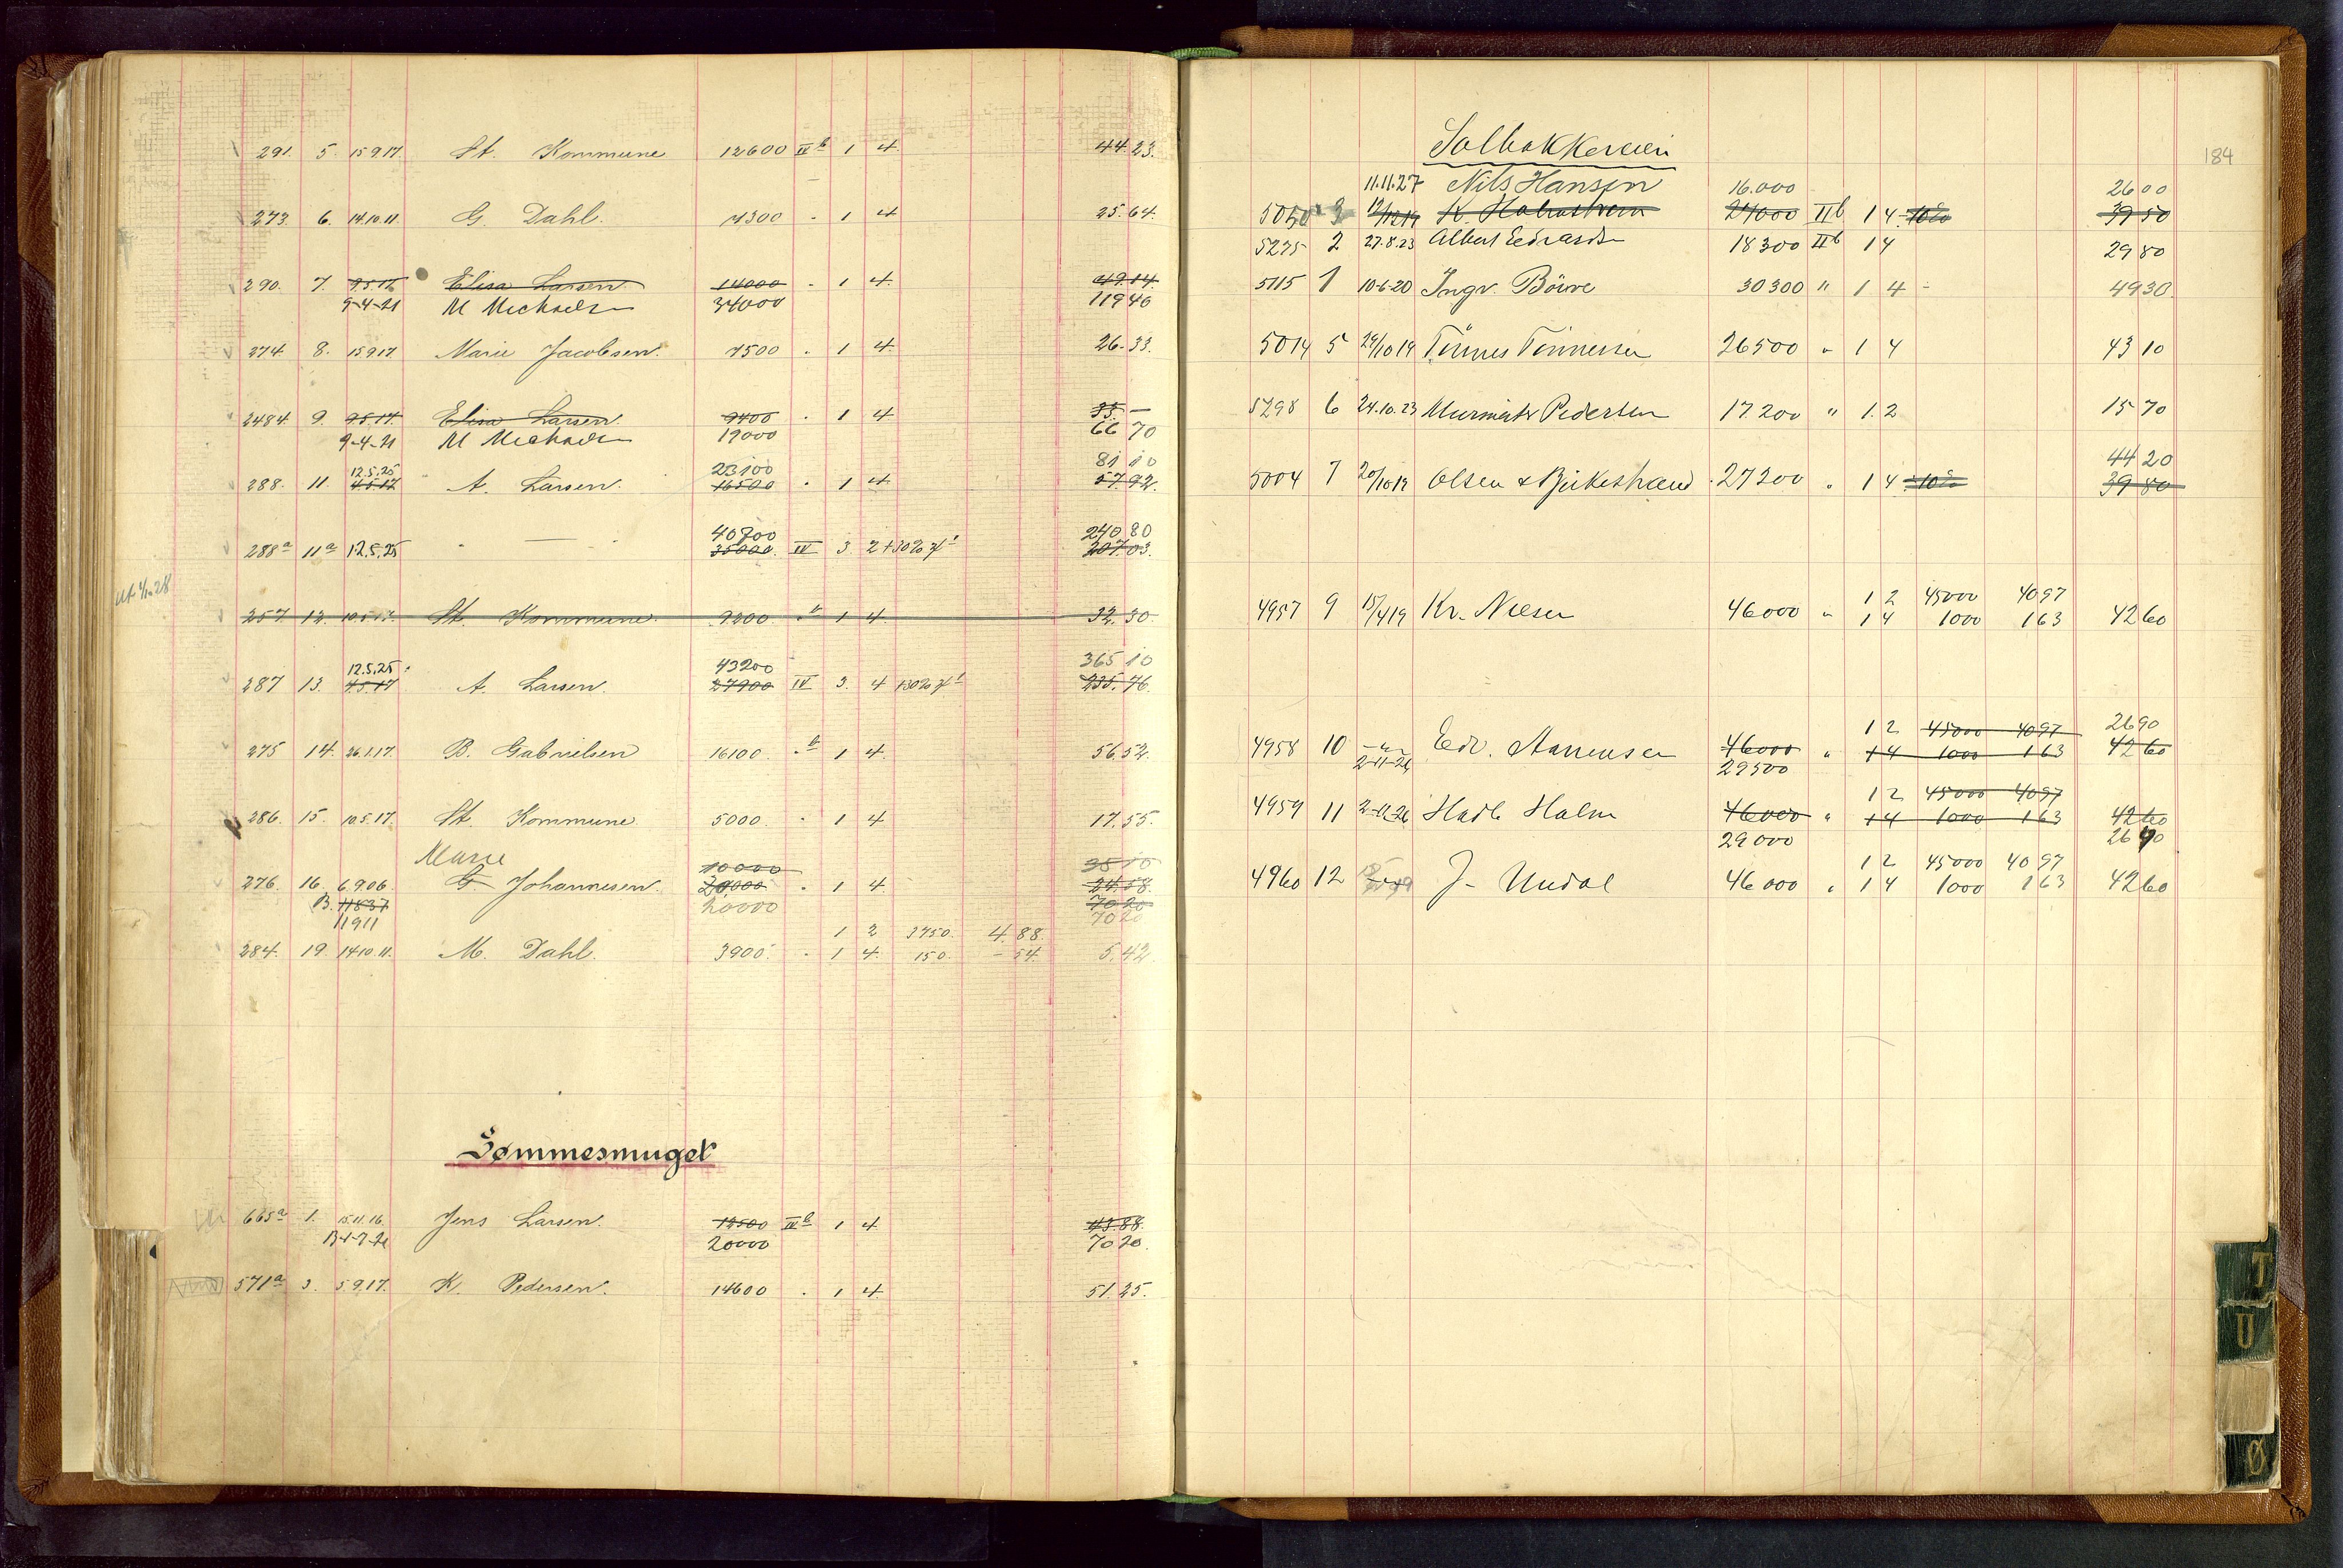 291. 5. 15.9.17 St. Kommune 12600 IV b 1 4. 44.23.
273. 6. 14.10.11. G. Dahl. 7300 " 1 4 25.64.
290. 7. 9.5.17 Elisa Larsen 14000 " 1 4. 49.14.
9-4-21 M Michaels 34000 119 40
274 8. 15.9.17 Marie Jacobsen. 7500 " 1 4. 26.33.
2484 9. 9.5.17. Elisa Larsen. 9400 " 1 4 33.–
9-4-21 M Michaels 19000 66 70
12.5.25 23100 81 10
288. 11. 4.5.17 A. Larsen. 16500 " 1 4. 57.92.
40700 240 80
288a 11a 12.5.25 " — " 35000. IV 3 2 + 30% 207.03.
Ut. 4/1-28
257 12. 10.5.17. St. Kommune. 9200 " b 1 4. 32.30.
12.5.25. 43200 365 10
287 13. 4.5.17 A. Larsen. 27900 IV 3. 4 130% 235.76.
275 14. 26.1.17. B. Gabrielsen 16100. " b 1 4. 56.52.
286. 15. 10.5.17. St. Kommune 5000. " 1 4 17.55.
Marie 10000 35 10
276. 16. 6.9.06. G Johannesen. 20000 " 1 4. 24.58.
B. 11837 20000 70 20
11911 70 20
1 2 3750. 4.88.
284. 19. 14.10.11. M. Dahl. 3900. " 1 4. 150. - 54. 5.42.
Sømmesmuget
665a 1. 15.11.16. Jens Larsen. 12500 IV b 1 4 43.88.
B-1-7-21 20000 70 20.
571a 3. 5.9.17. K. Pedersen. 14600 " 1 4. 51.25.
184
Solbakkeveien
11.11.27 Nils Hansen 16.000 26 00
5050 3 12/12 19 K. 24000 IIb 1 4 -10% 39 50
5275 2 27.8.23 Albert Edvards 18300 IIb 1 4 29 80
5115 1 10-6-20 Ingv. Böwe 30300 " 1 4 - 49 30.
5014 5 29/10 19 Tönnes Tönnesen 26500 " 1 4 43 10
5298 6 24.10.23 Murmstr Pedersen 17.200 " 1.2 15 70
44 20
5004 7 20/10 19 Olsen & Bjirkestrand 27200 " 1 4 -10% 39 80
1 2 45000 40 97
4957 9 15/4 19 Kr. Nilsen 46000 " 1 4 1000 1 63 42 60
1 2 45000 40 97 26 90
4958 10 – " – Edv. 46000 " 1 4 1000 1 63 42 60
2-11-26 29500
1 2 45000 40 97
4959 11 2-11-26 Hadl Halm 46000 " 1 4 1000 1 63 42 60
29000 26 40
1 2 45000 40 97
4960 12 J. Undal 46000 " 1 4 1000 1 63 42 60
T
U
Ø